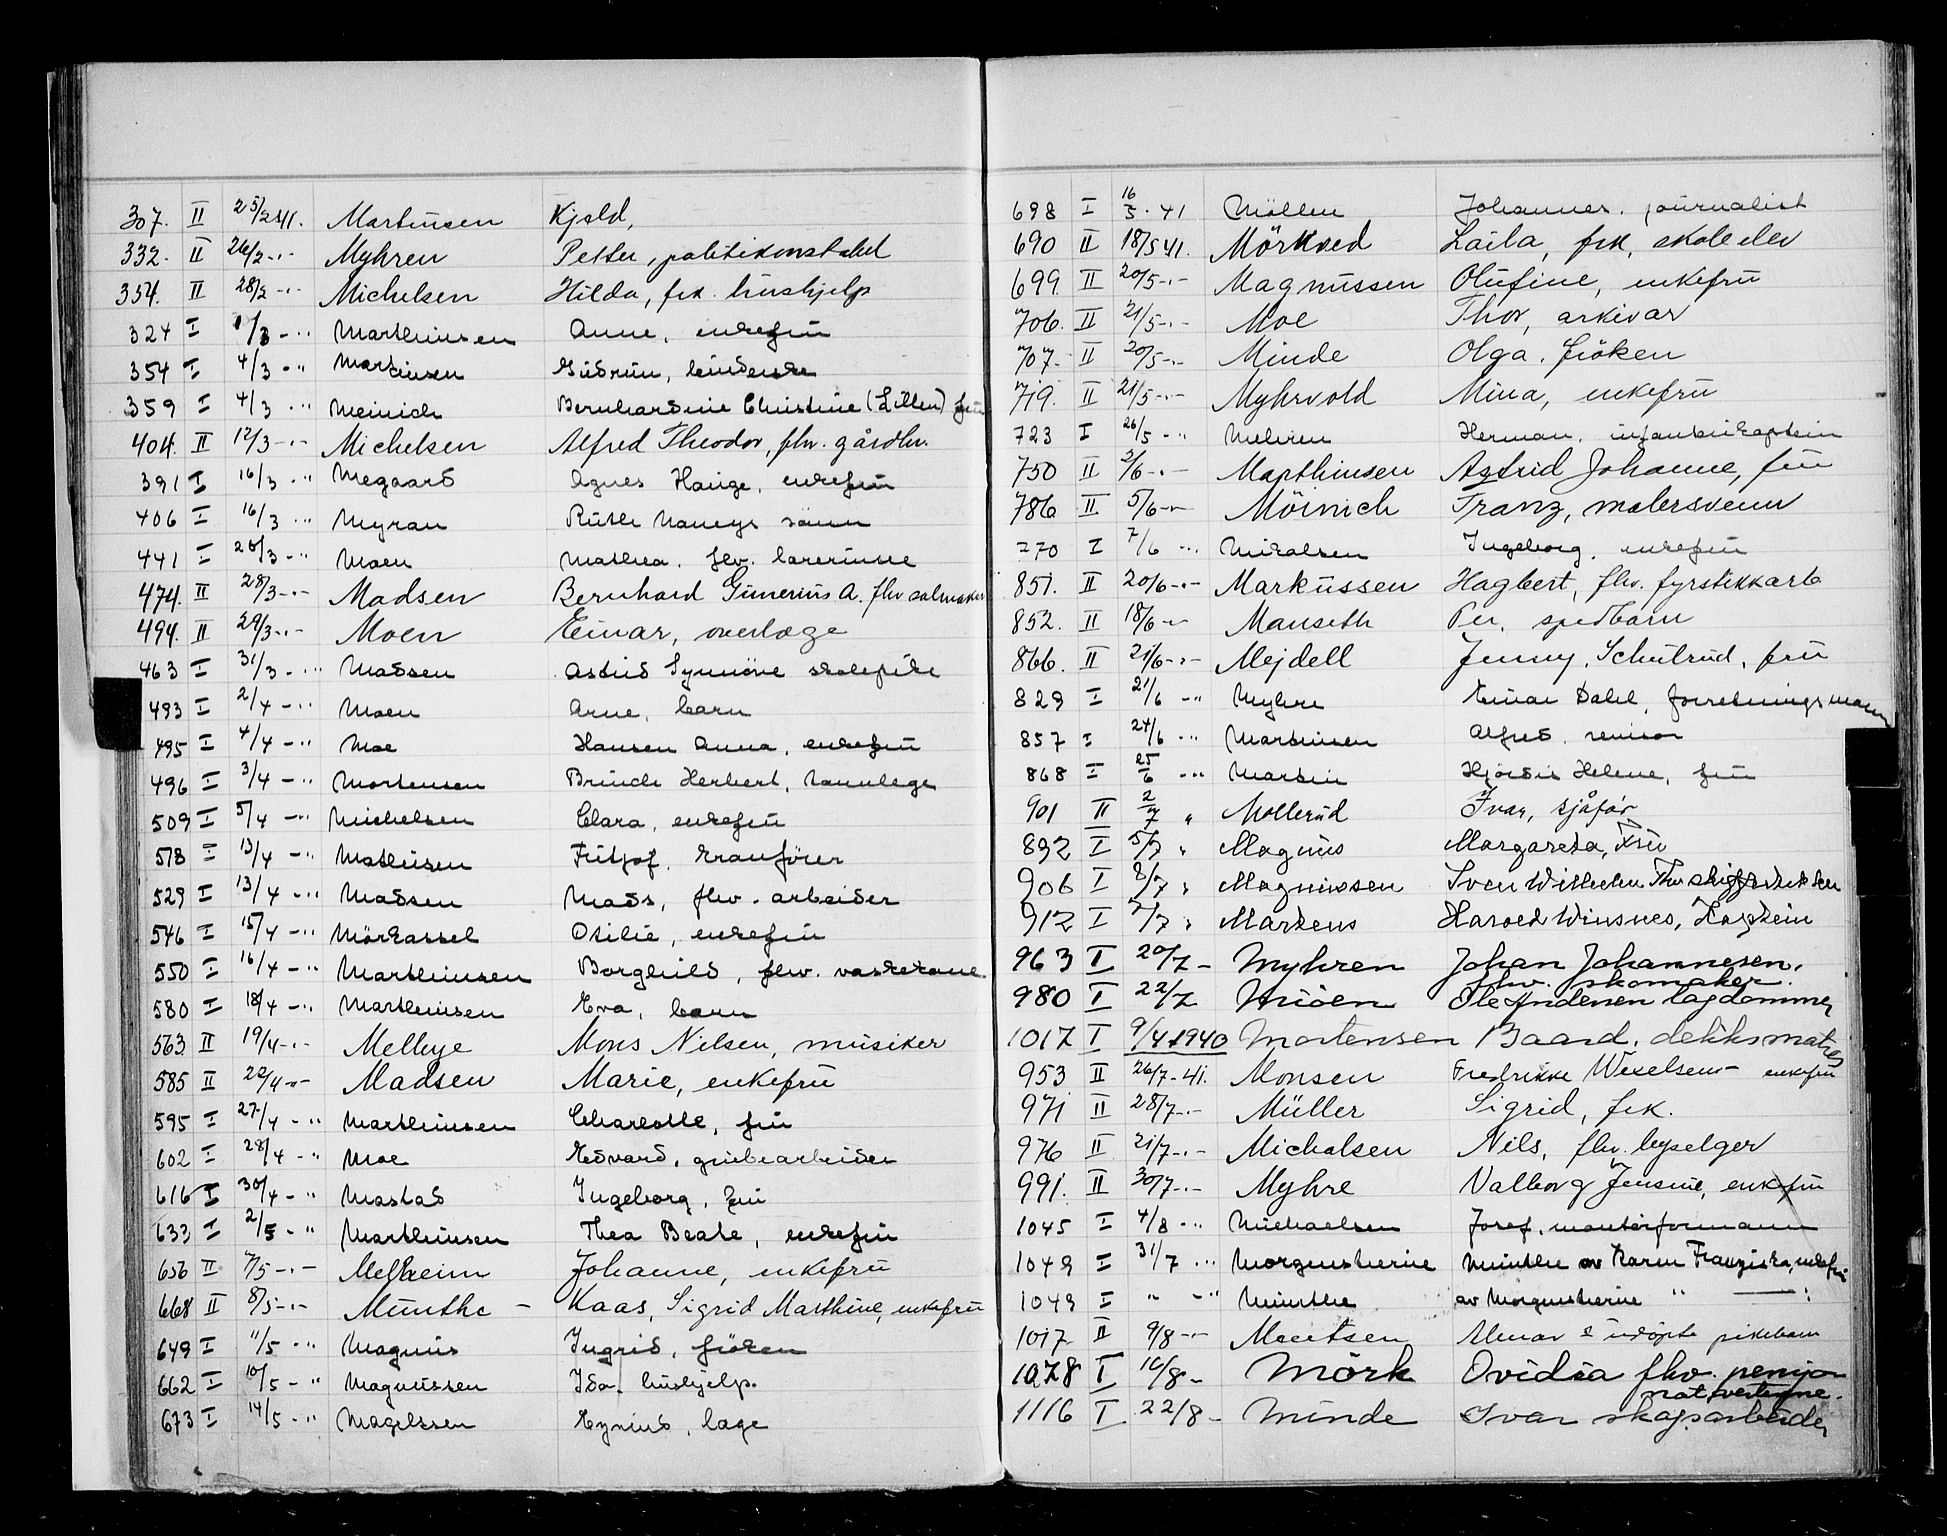 307. II 25/2 41. Martinsen Kjeld,
332. II 26/2 -"- Myhren Petter, politikonstabel
354. II 28/2 -"- Michelsen Hilda, frk. hushjelp
324 I 1/3 -"- Marthinsen Anne, enkefru
354 I 4/3 -" Martinsen Gudrun,
359 I 4/3 -" Meinich Bernhardine Christine (Lillen) fru
404. II 12/3 -"- Michelsen Alfred Theodor, fhv. gårdbr.
391 I 16/3 -" Megaard Agnes Hauge, enkefru
406 I 16/3 -" Myran Ruth Nancys sønn
441 I 20/3 -" Moen Mathea, fhv. lærerinne
474. II 28/3 -"- Madsen Bernhard Gunerius A. fhv salmaker
494. II 29/3 -"- Moen Einar, overlæge
463 I 31/3 -" Madsen Astrid Synnöve skolepike
493 I 2/4 -" Moen Arne, barn
495 I 4/4 -" Moe Hansen Anna, enkefru
496 I 3/4 -" Mortensen Brinch Herbert, tannlege
509 I 5/4 -" Michelsen Clara, enkefru
518 I 13/4 -" Mathisen Fritjof, kranförer
529 I 13/4 -" Madsen Mads, fhv. arbeider
546 I 15/4 -" Mörkassel Otilie, enkefru
550 I 16/4 -" Marthinsen Borghild, fhv. vaskekone
580 I 18/4 -" Marthinsen Eva, barn
563 II 19/4 -"- Melbye Mons Nilsen, musiker
585 II 22/4 -"- Madsen Marie, enkefru
595 I 27/4 -" Marthinsen Charlotte, fru
602 I 28/4 -" Moe Edvard, grubearbeider
616 I 30/4 -" Mastad Ingeborg, fru
633 I 2/5 -" Marthinsen Thea Beate, enkefru
656 II 7/5 -"- Melheim Johanne, enkefru
668 II 8/5 -"- Munthe - Kaas, Sigrid Marthine, enkefru
649 I 11/5 -" Magnus Ingrid, fröken
662 I 10/5 -" Magnussen Ida, hushjelp.
673 I 14/5 -" Magelssen Eyvind, læge
698 I 16/5 . 41 Möllen Johannes, journalist
690 II 18/5 41. Mörkved Laila, frk, skoleelev
699. II 20/5 -"- Magnussen Olufine, enkefru
706. II 21/5 -"- Moe Thor, arkivar
707. II 20/5 -"- Minde Olga, fröken
719. II 21/5 -"- Myhrvold Mina, enkefru
723 I 26/5 -" Mehren Herman, infanterikaptein
750 II 3/6 -"- Marthinsen Astrid Johanne, fru
786 II 5/6 -"- Möinich Franz, malersvenn
770 I 7/6 -" Mikalsen Ingeborg, enkefru
851. II 20/6 -"- Markussen Hagbert, fhv. fyrstikkarb
852. II 18/6 -"- Manseth Per, spedbarn
866. II 21/6 -"- Mejdell Jenny, Schulrud, fru
829 I 21/6 -" Myhre Einar Dahl, forretningsmann
857 I 24/6 -" Martinsen Alfred, revisor
868 I 25/6 -" Martin Hjördis Helene, fru
901 II 2/7 " Mollerud Ivar, sjåför
892 I 5/7 " Magnus Margareta, Fru
906 I 8/7 " Magnussen Sven Wilhelm Thv
912 I 7/7 " Martens Harald Winsnes, Kaptein
963 I 20/7 - Myhren Johan Johannesen,
fhv. skomaker.
980 I 22/7 Moen Ole Andersen lagdommer
1017 I 9/4 1940 Mortensen Baard, dekksmatros
953 II 26/7 - 41. Monsen Fredrikke Wexelsens - enkefru
971 II 28/7 -"- Müller Sigrid, frk.
976 II 21/7 -"- Michalsen Nils, fhv. lysselger
991. II 30/7 -"- Myhre Valborg Jensine, enkefru
1045 I 4/8 -" Michaelsen Josef, montörformann
1049 I 31/7 -" Morgenstierne Munthe av Karen Franziska, enkefru
1049 I " -" Munthe av Morgenstierne " —— "
1017 II 9/8 -"- Mentsen udöpte pikebarn
1078 I 10/8 - Mörk Ovidia fhv. pensjo-
natvertinne.
1116 I 22/8 - Minde Ivar skogsarbeider